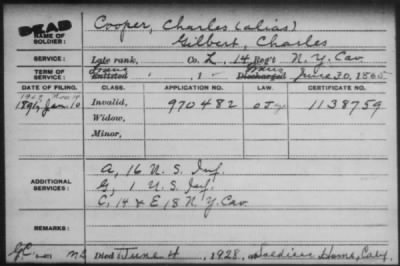 DEAD
NAME OF SOLDIER: Cooper, Charles (alias)
Gilbert, Charles
SERVICE: Late rank, Co. L, 14 Reg't N.Y. Cav.
TERM OF SERVICE: Enlisted , 1 - Discharged June 30, 1865
DATE OF FILING. CLASS. APPLICATION NO. LAW. CERTIFICATE NO.
Jan. 10 Invalid, 970482 1138759
Widow,
Minor,
ADDITIONAL SERVICES: A, 16 U.S. Inf.
G, 1 U.S. Inf.
C, 14 & E, 18 N.Y. Cav.
REMARKS:
Died June 4, 1928, Soldiers Home, Calif